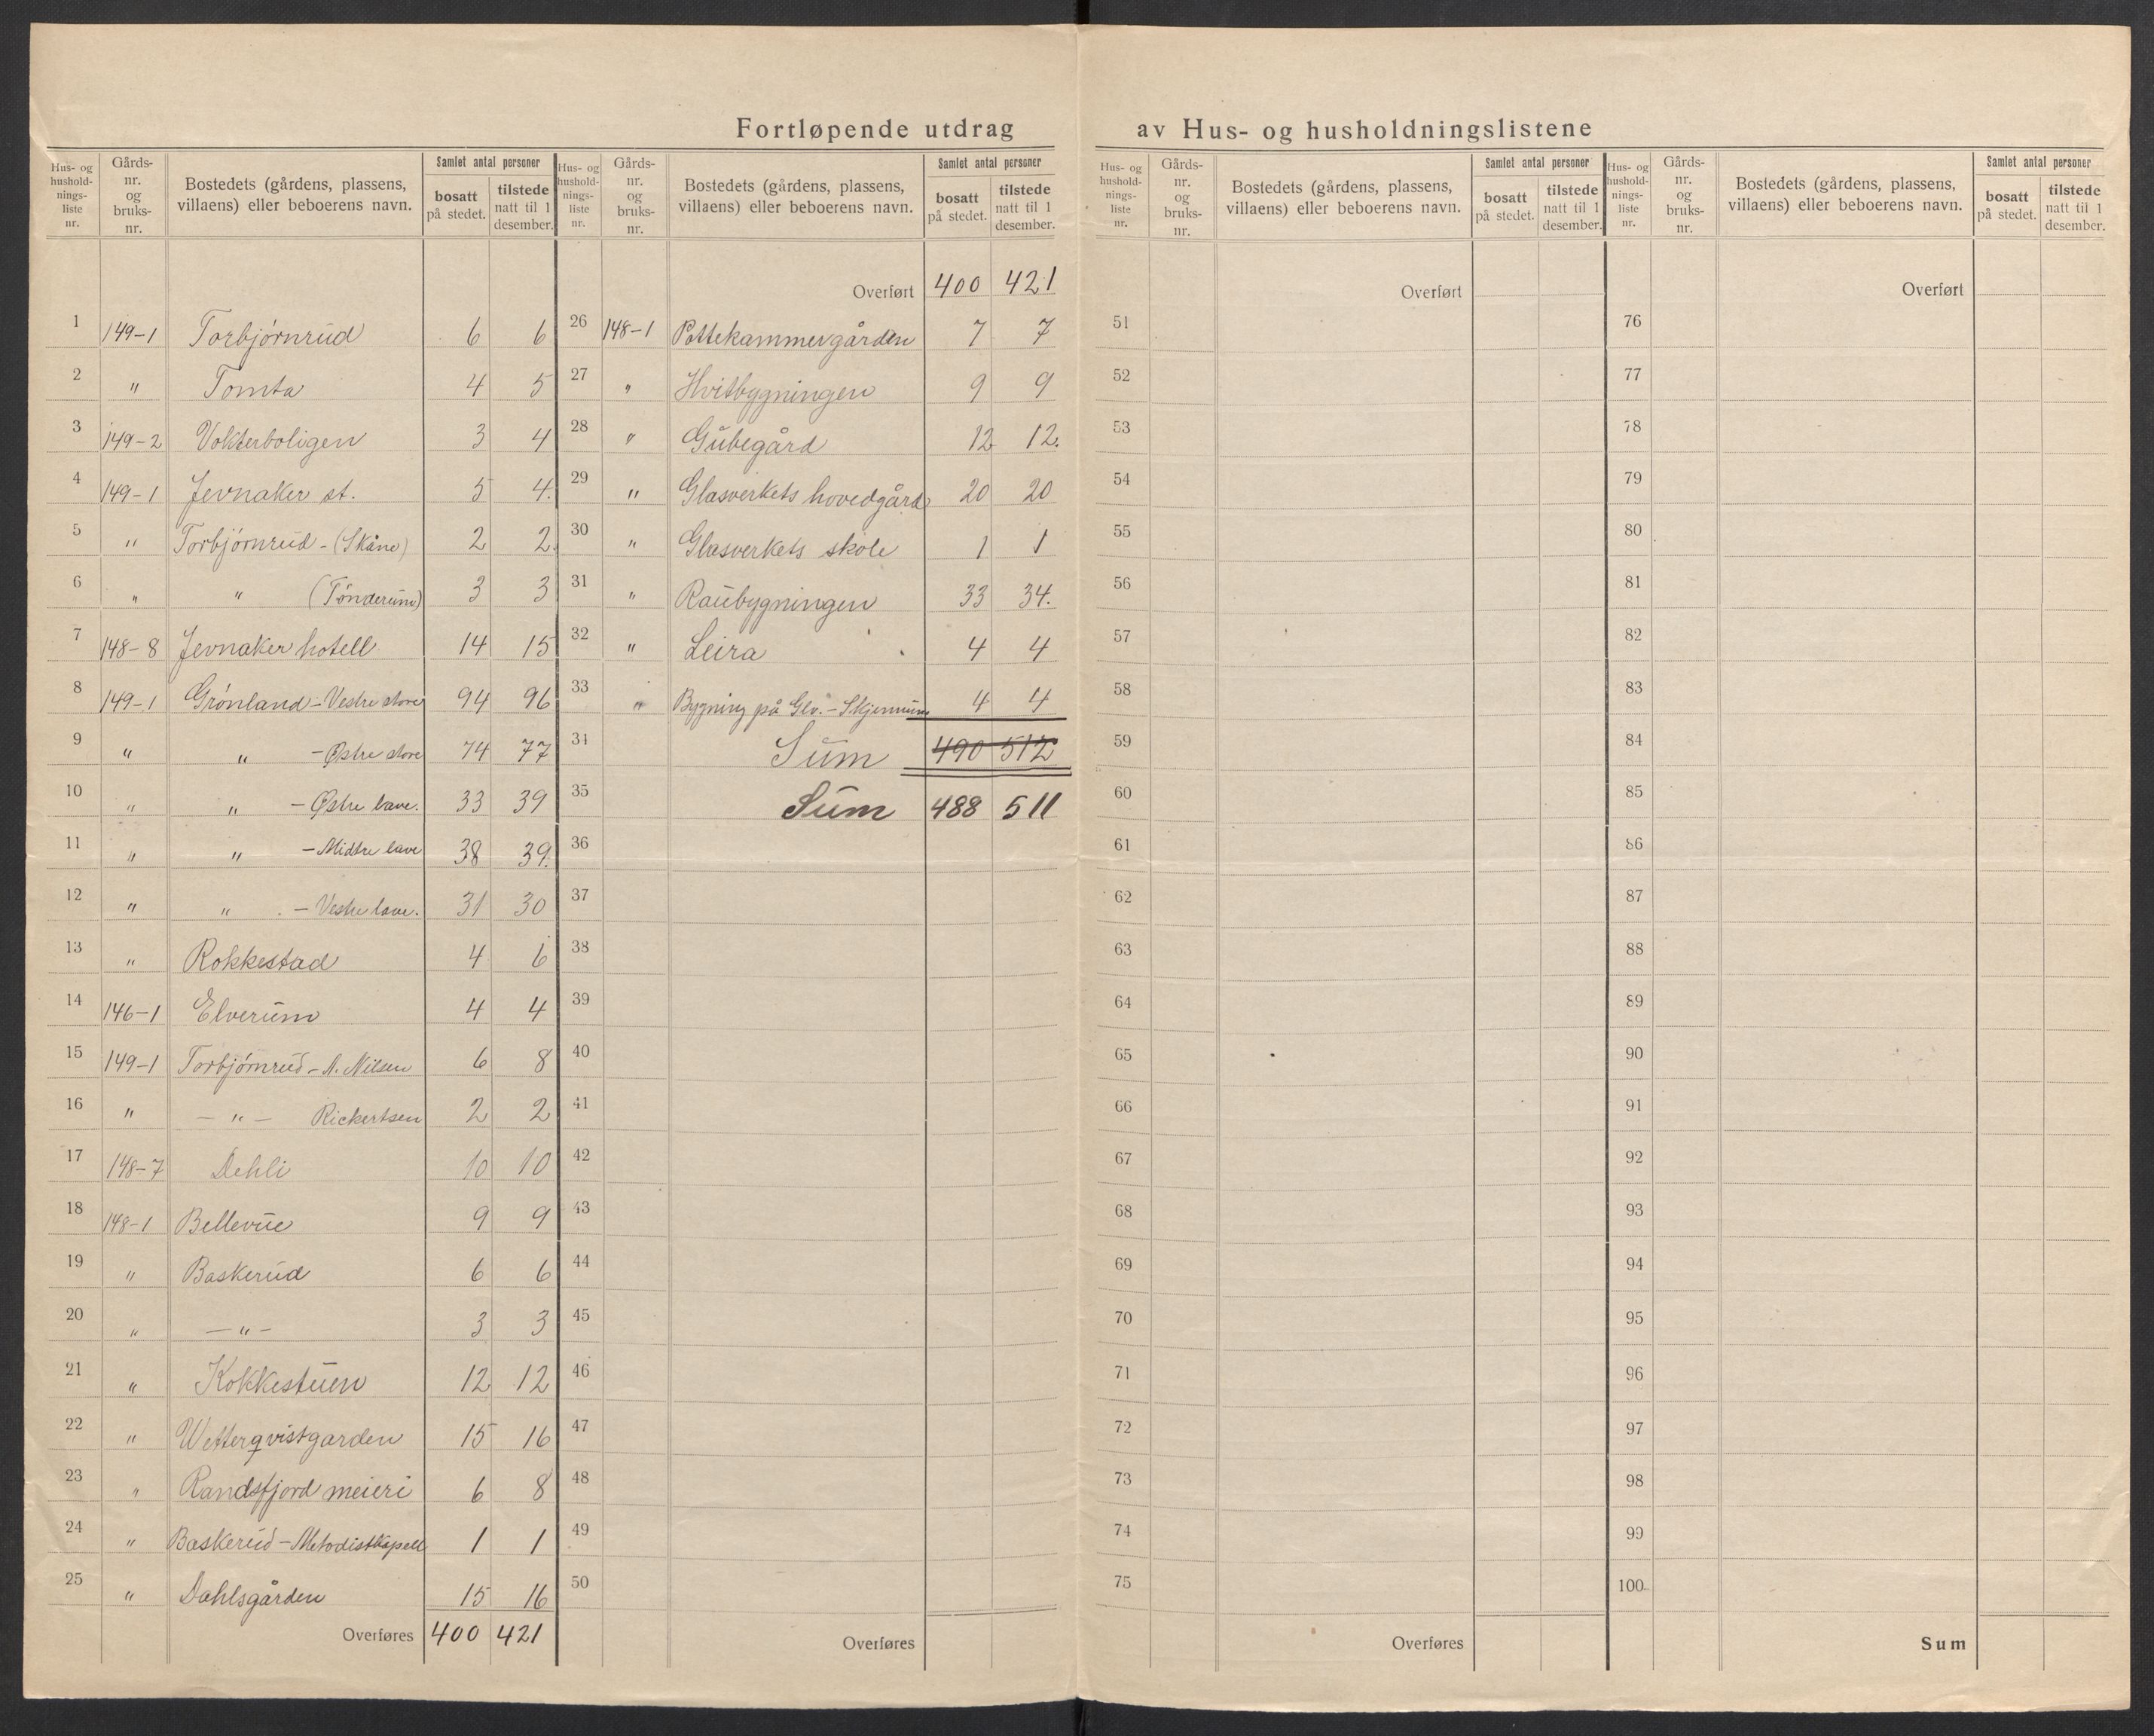 Fortløpende utdrag av Hus- og husholdningslistene
Hus- og hushold- nings- liste nr. Gårds- nr. og bruks- nr. Bostedets (gårdens, plassens, villaens) eller beboerens navn. Samlet antal personer bosatt på stedet. tilstede natt til 1 desember.
1 149-1 Torbjørnrud 6 6
2 " Tomta 4 5
3 149-2 Vokterboligen 3 4
4 149-1 Jevnaker st. 5 4
5 " Torbjørnrud - (Skåne) 2 2
6 " " (Tønderum) 3 3
7 148-8 Jevnaker hotell 14 15
8 149-1 Grønland - Vestre store 94 96
9 " " - Østre store 74 77
10 " " - Østre lave. 33 39
11 " " - Midtre lave 38 39.
12 " " - Vestre lave. 31 30
13 " Rokkestad 4 6
14 146-1 Elverum 4 4
15 149-1 Torbjørnrud - A. Nilsen 6 8
16 " - " - Rickertsen 2 2
17 148-7 Dehli 10 10
18 148-1 Bellevue 9 9
19 " Baskerud 6 6
20 " - " - 3 3
21 " Kokkestuen 12 12
22 " Wetterqvistgarden 15 16
23 " Randsfjord meieri 6 8
24 " Baskerud - Metodistkapell 1 1
25 " Dahlsgården 15 16
Overføres 400 421
Hus- og hushold- nings- liste nr. Gårds- nr. og bruks- nr. Bostedets (gårdens, plassens, villaens) eller beboerens navn. Samlet antal personer bosatt på stedet. tilstede natt til 1 desember.
Overført 400 421
26 148-1 Pottekammergården 7 7
27 " Hvitbygningen 9 9
28 " Gubegård 12 12.
29 " Glasverkets hovedgård 20 20
30 " Glasverkets skole 1 1
31 " Raubygningen 33 34.
32 " Leira 4 4
33 " Bygning på Glv. - Skjermum 4 4
34 Sum 490 512
35 Sum 488 511
36
37
38
39
40
41
42
43
44
45
46
47
48
49
50
Overføres
Hus- og hushold- nings- liste nr. Gårds- nr. og bruks- nr. Bostedets (gårdens, plassens, villaens) eller beboerens navn. Samlet antal personer bosatt på stedet. tilstede natt til 1 desember.
Overført
51
52
53
54
55
56
57
58
59
60
61
62
63
64
65
66
67
68
69
70
71
72
73
74
75
Overføres
Hus- og hushold- nings- liste nr. Gårds- nr. og bruks- nr. Bostedets (gårdens, plassens, villaens) eller beboerens navn. Samlet antal personer bosatt på stedet. tilstede natt til 1 desember.
Overført
76
77
78
79
80
81
82
83
84
85
86
87
88
89
90
91
92
93
94
95
96
97
98
99
100
Sum